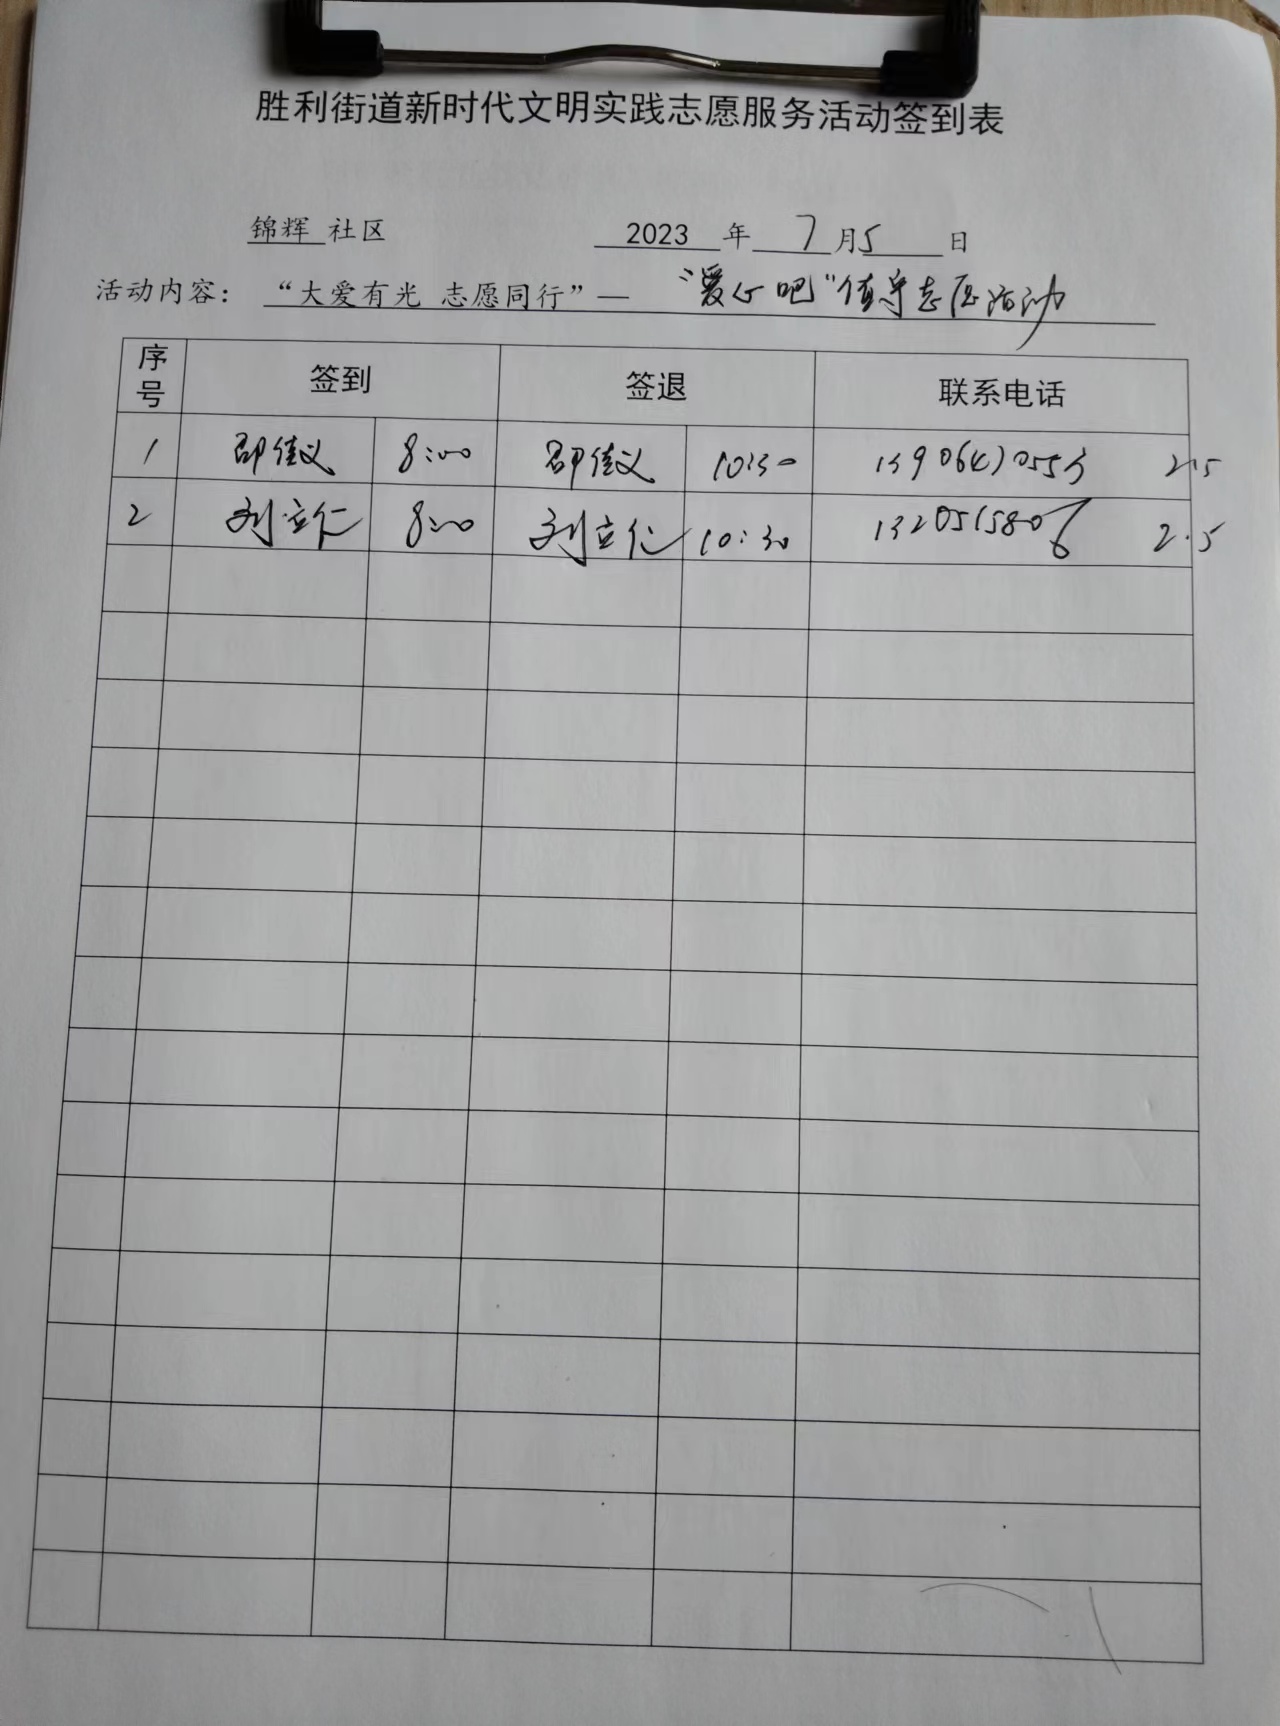 胜利街道新时代文明实践志愿服务活动签到表
锦辉 社区 2023 年 7 月 5 日
活动内容：“大爱有光 志愿同行”— “爱心吧”值守志愿活动
序号 签到 签退 联系电话
1 邵佳义 8:00 邵佳义 10:30 13906470553 2.5
2 刘立仁 8:00 刘立仁 10:30 2.5